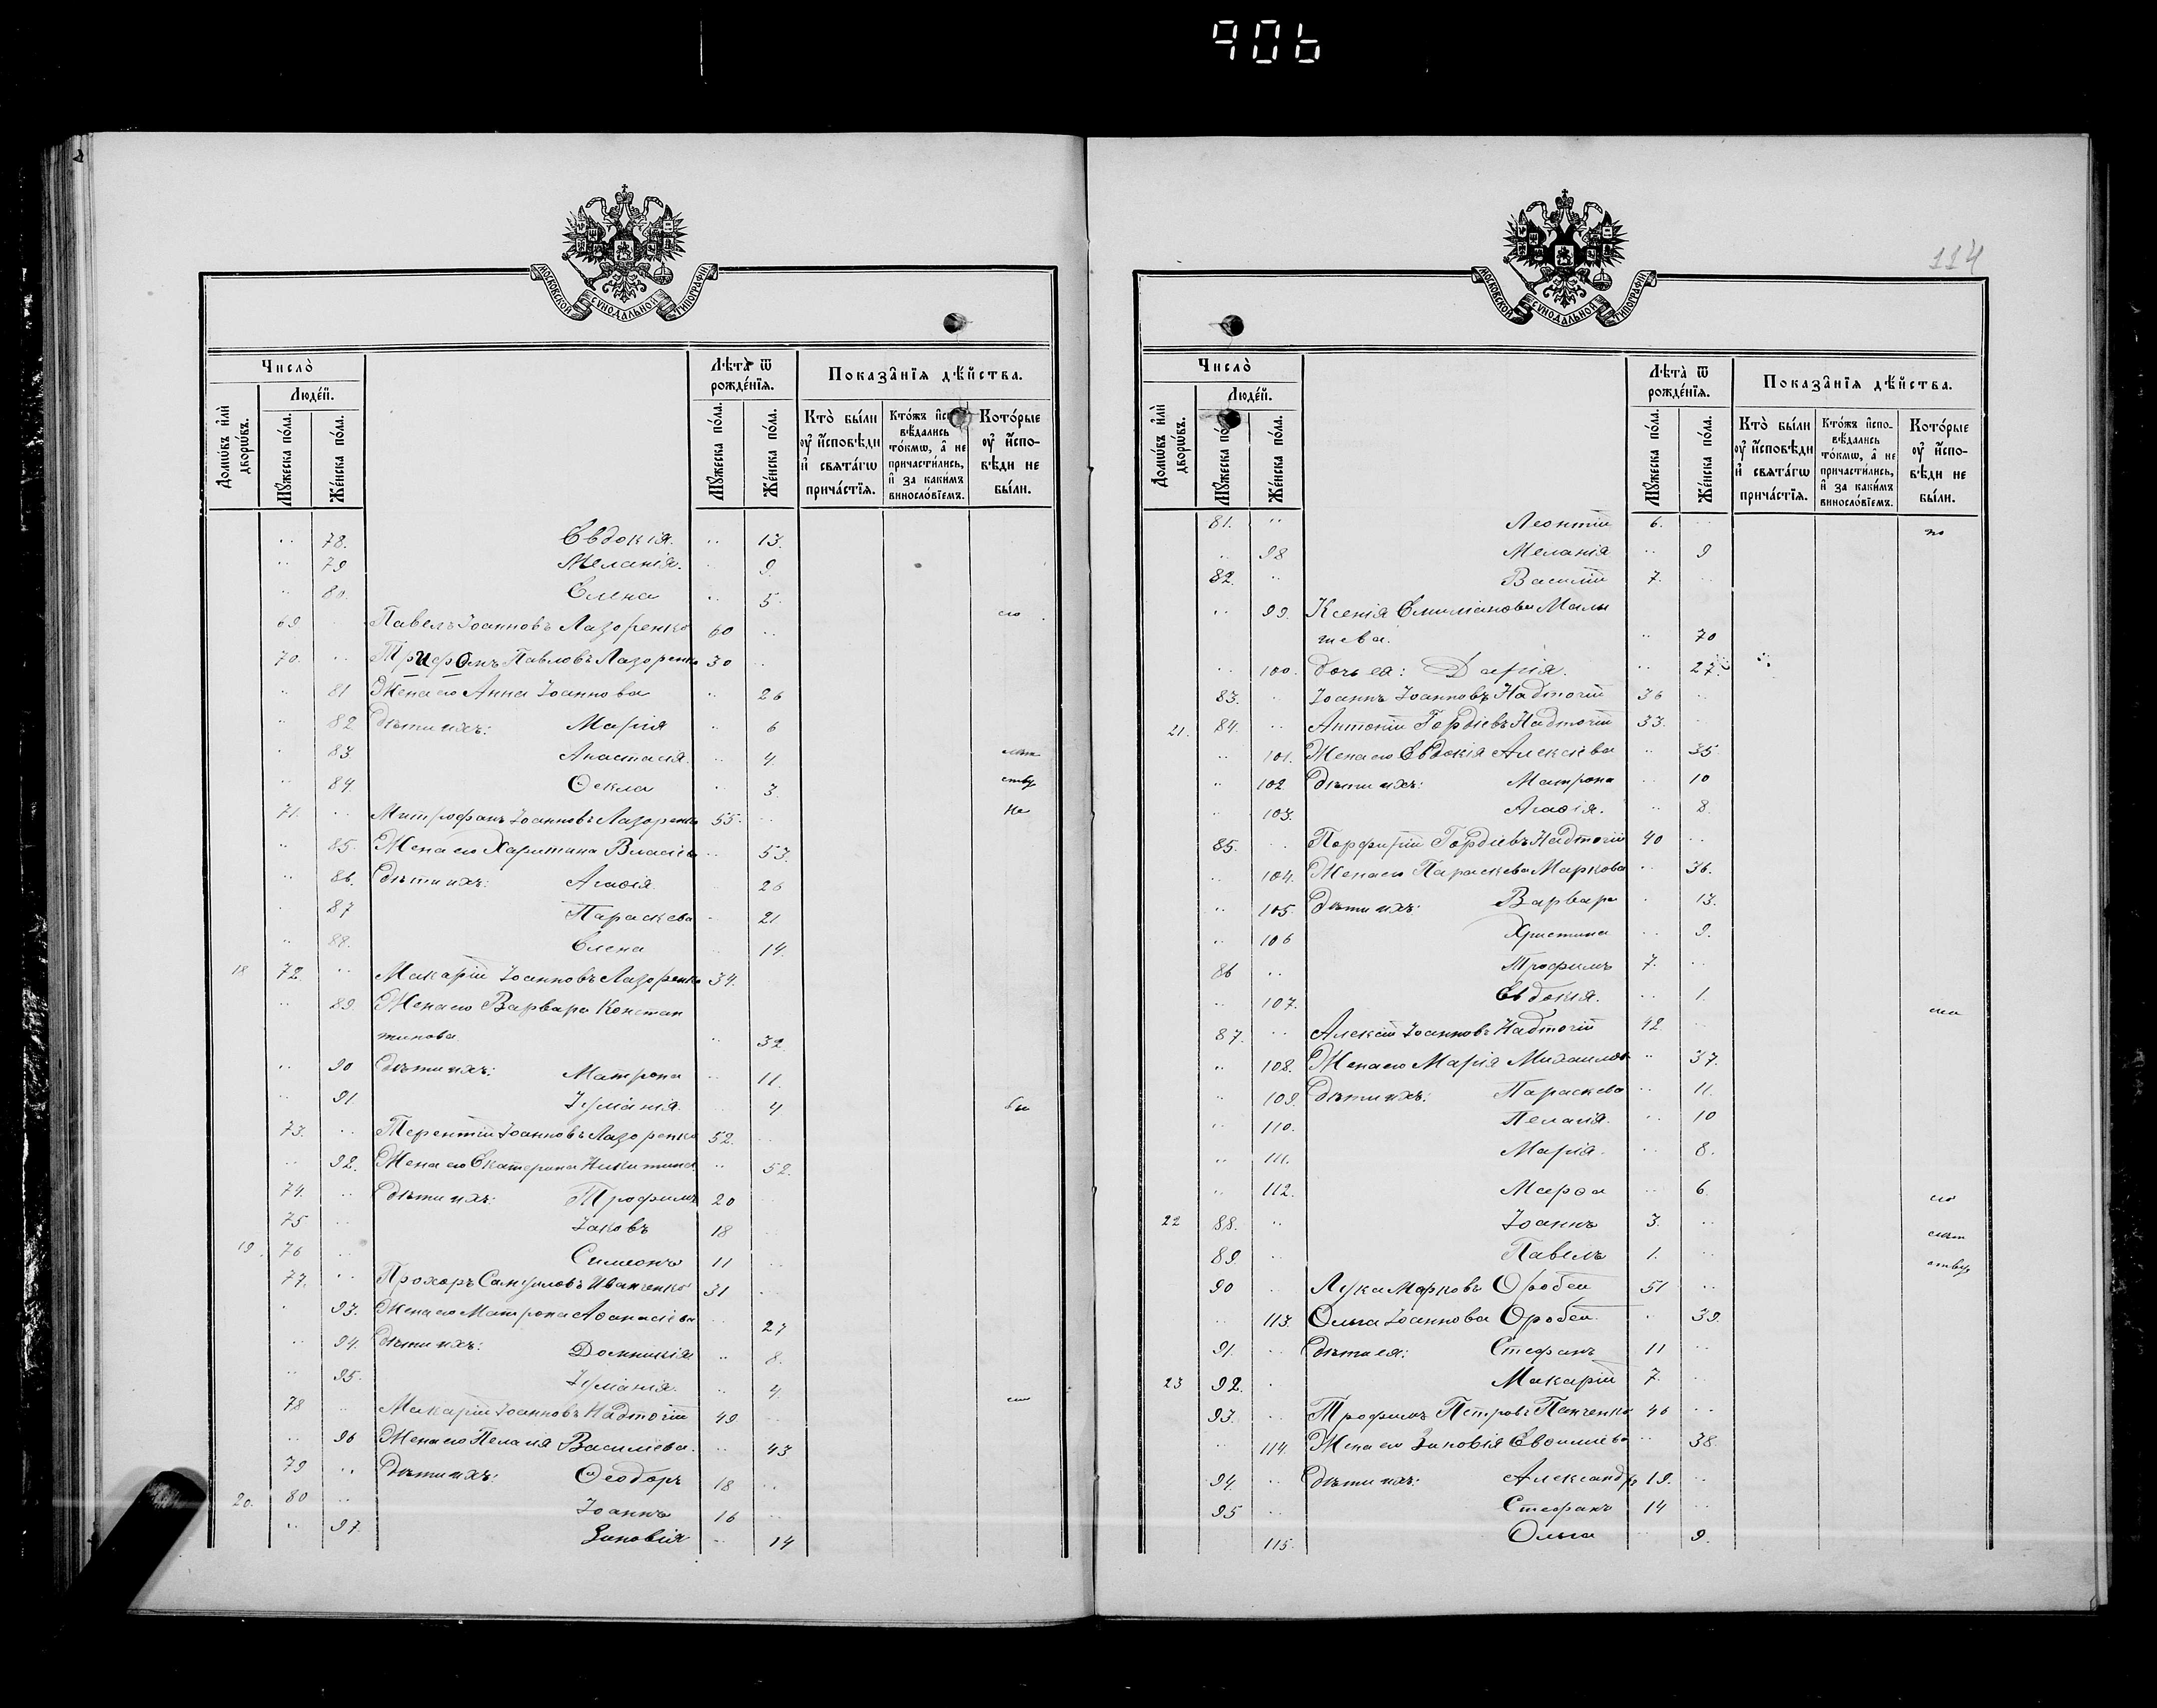 906
МОСКОВСКОЙ СѴНОДАЛЬНОЙ ТИПОГРАФІИ
Число̀
Людéй.
Домѡ́въ и҆лѝ дворѡ́въ.
Мꙋ́жеска по́ла.
Же́нска по́ла.
Лѣ́та ѿ рождéнїѧ.
Мꙋ́жеска по́ла.
Же́нска по́ла.
Показа̑нїѧ дѣ́йства.
Кто̀ бы́ли ᲂу҆ и҆́сповѣди и҆ свѧта́гѡ прича́стїѧ.
Кто́жъ и҆спо-вѣ́дались то́кмѡ, а҆ не причасти́лись, и҆ за каки́мъ винослóвїемъ.
Котóрые ᲂу҆ и҆́спо-вѣди не бы́ли.
78. Евдокія. 13.
79 Меланія. 9.
80. Елена 5.
69 Павелъ Іоанновъ Лазоренко 60
70. Трифонъ Павловъ Лазоренко 30
81 Жена его Анна Іоаннова 26
82 Дѣти ихъ: Марія 6
83. Анастасія. 4.
84. Ѳекла 3.
71. Митрофанъ Іоанновъ Лазоренко 55. Не
85. Жена его Харитина Власіева 53.
86. Дѣти ихъ: Агаѳія 26
87 Параскева 21
88. Елена 14.
18 72. Макарій Іоанновъ Лазоренко 34.
89. Жена его Варвара Констан
тинова 32
90 Дѣти ихъ: Матрона 11.
91. Іуліанія. 4
73. Терентій Іоанновъ Лазоренко 52.
92. Жена его Екатерина Никитина 52.
74. Дѣти ихъ: Трофимъ 20
75 Іаковъ 18
19. 76 Симеонъ 11
77. Прохоръ Самуиловъ Иванченко 31
93. Жена его Матрона Аѳанасіева 27
94. Дѣти ихъ: Домникія 8.
95. Іуліанія. 4.
78 Макарій Іоанновъ Надточій 49.
96 Жена его Пелагія Василіева. 43
79 Дѣти ихъ: Ѳеодоръ 18
20. 80 Іоаннъ 16
97. Зиновія 14
114
МОСКОВСКОЙ СѴНОДАЛЬНОЙ ТИПОГРАФІИ
Число̀
Людéй.
Домѡ́въ и҆лѝ дворѡ́въ.
Мꙋ́жеска по́ла.
Же́нска по́ла.
Лѣ́та ѿ рождéнїѧ.
Мꙋ́жеска по́ла.
Же́нска по́ла.
Показа̑нїѧ дѣ́йства.
Кто̀ бы́ли ᲂу҆ и҆́сповѣди и҆ свѧта́гѡ прича́стїѧ.
Кто́жъ и҆спо-вѣ́дались то́кмѡ, а҆ не причасти́лись, и҆ за каки́мъ винослóвїемъ.
Котóрые ᲂу҆ и҆́спо-вѣди не бы́ли.
81. Леонтій 6. по
98 Меланія 9
82. Василій 7.
99. Ксенія Емиліанова Малы
шева. 70
100. Дочь ея: Дарія. 27.
83. Іоаннъ Іоанновъ Надточій 36
21. 84. Антоній Гордіевъ Надточій 33.
101. Жена его Евдокія Алексіева 35
102 Дѣти ихъ: Матрона 10
103. Агаѳія. 8.
85. Порфирій Гордіевъ Надточій 40
104. Жена его Параскева Маркова 36.
105. Дѣти ихъ: Варвара 13.
106 Христина 9.
86 Трофимъ 7.
107. Евдокія. 1.
87. Алексій Іоанновъ Надточій 42
108. Жена его Марія Михаилова 37.
109. Дѣти ихъ: Параскева 11.
110. Пелагія. 10
111. Марія. 8.
112. Марѳа 6.
22 88. Іоаннъ 3.
89. Павелъ 1.
90 Лука Марковъ Оробей 51
113. Ольга Іоаннова Оробей. 39.
91. Дѣти ея: Стефанъ 11
23 92. Макарій 7.
93. Трофимъ Петровъ Панченко 46
114. Жена его Зиновія Евѳиміева 38.
94. Дѣти ихъ: Александръ 19.
95 Стефанъ 14
115. Ольга 9.